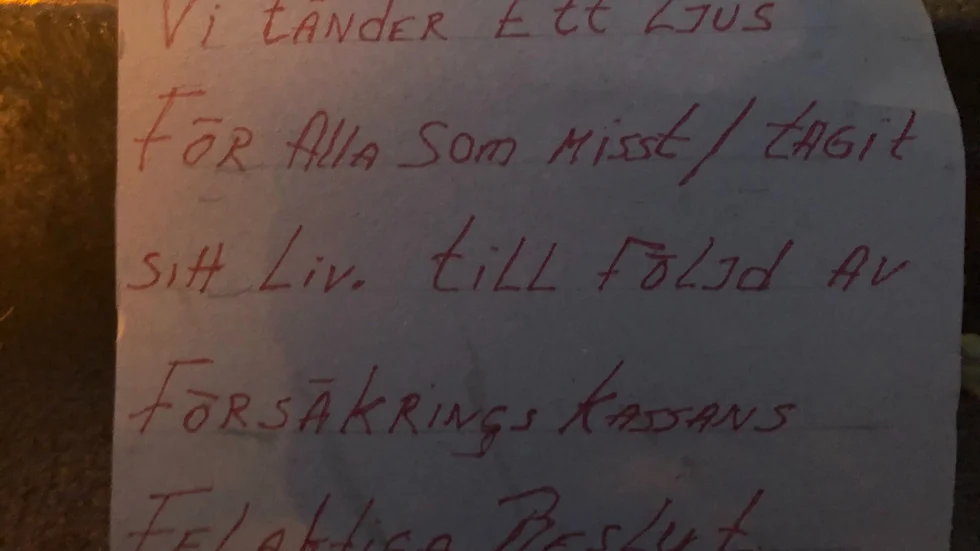 Vi tänder Ett Ljus
För Alla Som Misst/tagit
sitt Liv. till Följd Av
Försäkrings Kassans
Felaktiga Beslut.